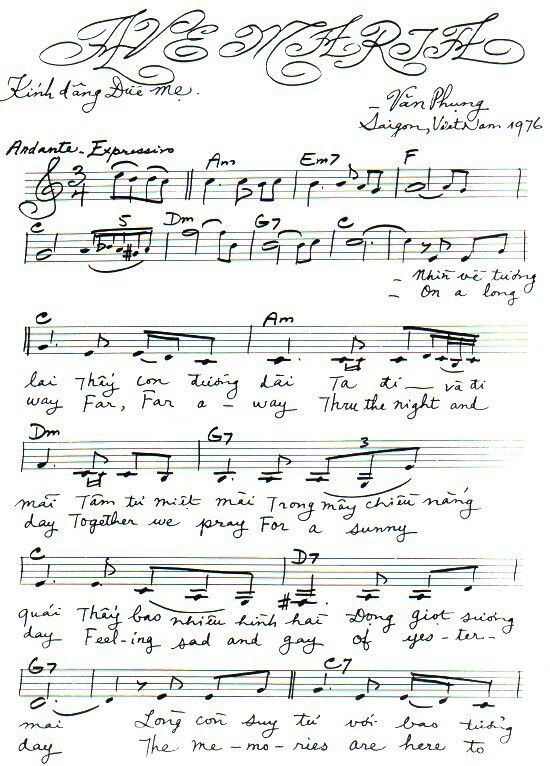 AVE MARIA
Kính dâng Đức Mẹ.
- Văn Phụng
Saigon, Việt Nam 1976
Andante - Expressivo
3
4
Am Em7 F
C 5 Dm G7 C
- Nhìn về tương
- On a long
C Am
lai Thấy con đường dài Ta đi — và đi
way Far, Far a - way Thru the night and
Dm G7 3
mãi Tâm tư miệt mài Trong mây chiều nắng
day Together we pray For a sunny
C D7
quái Thấy bao nhiêu hình hài Đọng giọt sương
day Feel-ing sad and gay of yes-ter-
G7 C7
mai Lòng còn suy tư với bao tiếng
day The me-mo-ries are here to